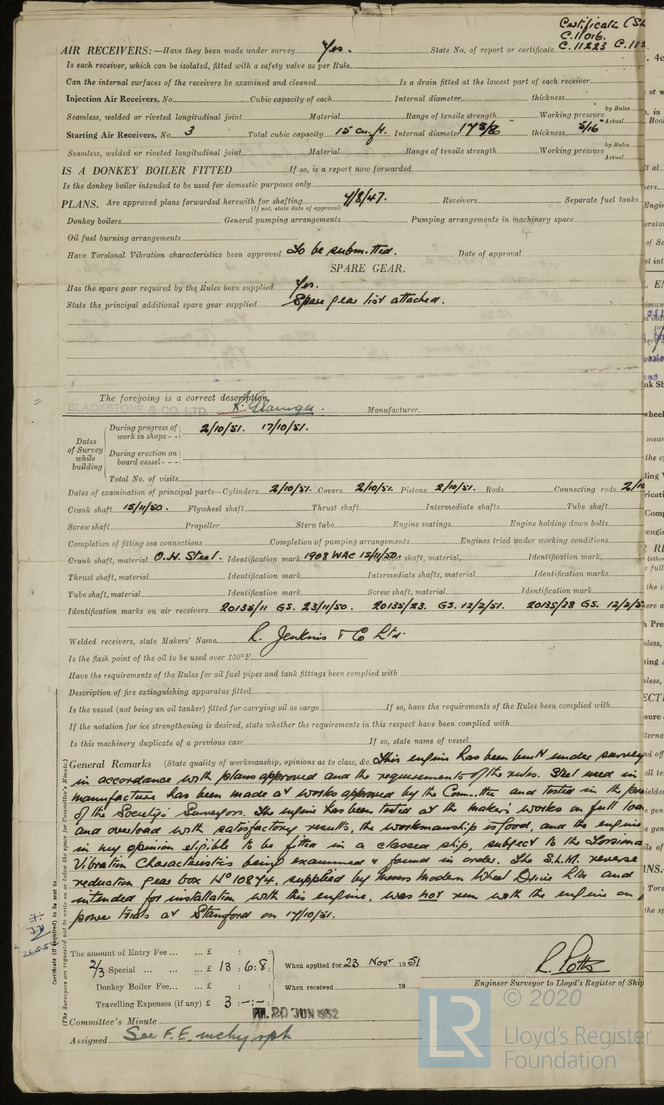 Certificate (S
C.11016.
C.11223 C.112
AIR RECEIVERS:—Have they been made under survey Yes. State No. of report or certificate
Is each receiver, which can be isolated, fitted with a safety valve as per Rule
Can the internal surfaces of the receivers be examined and cleaned Is a drain fitted at the lowest part of each receiver
Injection Air Receivers, No. Cubic capacity of each Internal diameter thickness
Seamless, welded or riveted longitudinal joint Material Range of tensile strength Working pressure by Rules Actual
Starting Air Receivers, No. 3 Total cubic capacity 15 cu.ft. Internal diameter 17 3/8" thickness 5/16"
Seamless, welded or riveted longitudinal joint Material Range of tensile strength Working pressure by Rules Actual
IS A DONKEY BOILER FITTED If so, is a report now forwarded
Is the donkey boiler intended to be used for domestic purposes only
PLANS. Are approved plans forwarded herewith for shafting 7/8/47. Receivers Separate fuel tanks
(If not, state date of approval)
Donkey boilers General pumping arrangements Pumping arrangements in machinery space
Oil fuel burning arrangements
Have Torsional Vibration characteristics been approved To be submitted. Date of approval
SPARE GEAR.
Has the spare gear required by the Rules been supplied Yes.
State the principal additional spare gear supplied Spare gear list attached.
The foregoing is a correct description,
BLACKSTONE & CO. LTD. Manufacturer.
Dates of Survey while building
During progress of work in shops - - 2/10/51. 17/10/51.
During erection on board vessel - - -
Total No. of visits
Dates of examination of principal parts—Cylinders 2/10/51. Covers 2/10/51. Pistons 2/10/51. Rods Connecting rods 2/10
Crank shaft 15/11/50. Flywheel shaft Thrust shaft Intermediate shafts Tube shaft
Screw shaft Propeller Stern tube Engine seatings Engine holding down bolts
Completion of fitting sea connections Completion of pumping arrangements Engines tried under working conditions
Crank shaft, material O.H. Steel. Identification mark 1908 WAC 15/11/50. shaft, material, Identification mark
Thrust shaft, material Identification mark Intermediate shafts, material Identification marks
Tube shaft, material Identification mark Screw shaft, material Identification mark
Identification marks on air receivers 20135/11 GS. 23/11/50. 20135/23. GS. 12/2/51. 20135/28 GS. 12/2/5
Welded receivers, state Makers' Name R. Jenkins & Co Ltd.
Is the flash point of the oil to be used over 150°F
Have the requirements of the Rules for oil fuel pipes and tank fittings been complied with
Description of fire extinguishing apparatus fitted
Is the vessel (not being an oil tanker) fitted for carrying oil as cargo If so, have the requirements of the Rules been complied with
If the notation for ice strengthening is desired, state whether the requirements in this respect have been complied with
Is this machinery duplicate of a previous case If so, state name of vessel
General Remarks (State quality of workmanship, opinions as to class, &c. This engine has been built under survey
in accordance with plans approved and the requirements of the rules. Steel used in
manufacture has been made at works approved by the Com..ttee and tested in the pres
of the Society's Surveyors. The engine has been tested at the makers works on full load
and overload with satisfactory results, the workmanship is good, and the engine
in my opinion eligible to be fitted in a classed ship, subject to the Torsional
Vibration Characteristics being examined & found in order. The S.L.M. reverse
reduction gear box No 10874, supplied by Messrs Modern Wheel Drive Ltd and
intended for installation with this engine, was not run with the engine on
power trials at Stamford on 17/10/51.
Certificate (if required) to be sent to
(The Surveyors are requested not to write on or below the space for Committee's Minute.)
The amount of Entry Fee ... £ : :
2/3 Special ... £ 13 : 6 : 8 When applied for 23 Nov 1951
Donkey Boiler Fee... £ : : When received 19
Travelling Expenses (if any) £ 3 : – : –
R. Potts
Engineer Surveyor to Lloyd's Register of Ship
Committee's Minute FRI. 20 JUN 1952
Assigned See F.E. mchy rpt.
LR
© 2020
Lloyd's Register
Foundation